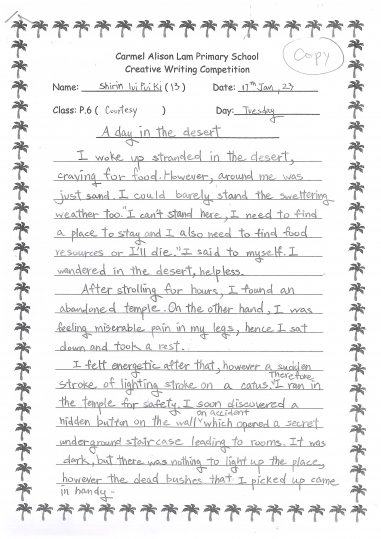 Copy
Carmel Alison Lam Primary School
Creative Writing Competition
Name: Shirin Lui Pui Ki (13) Date: 17th Jan, 23
Class: P.6 ( Courtesy ) Day: Tuesday
A day in the desert
I woke up stranded in the desert,
craving for food. However, around me was
just sand. I could barely stand the sweltering
weather too. "I can't stand here, I need to find
a place to stay and I also need to find food
resources or I'll die." I said to myself. I
wandered in the desert, helpless.
After strolling for hours, I found an
abandoned temple. On the other hand, I was
feeling miserable pain in my legs, hence I sat
down and took a rest.
I felt energetic after that, however a sudden
stroke of lighting stroke on a catus. Therefore, I ran in
the temple for safety. I soon discovered a
hidden button on the wall on accident which opened a secret
underground staircase leading to rooms. It was
dark, but there was nothing to light up the place,
however the dead bushes that I picked up came
in handy.